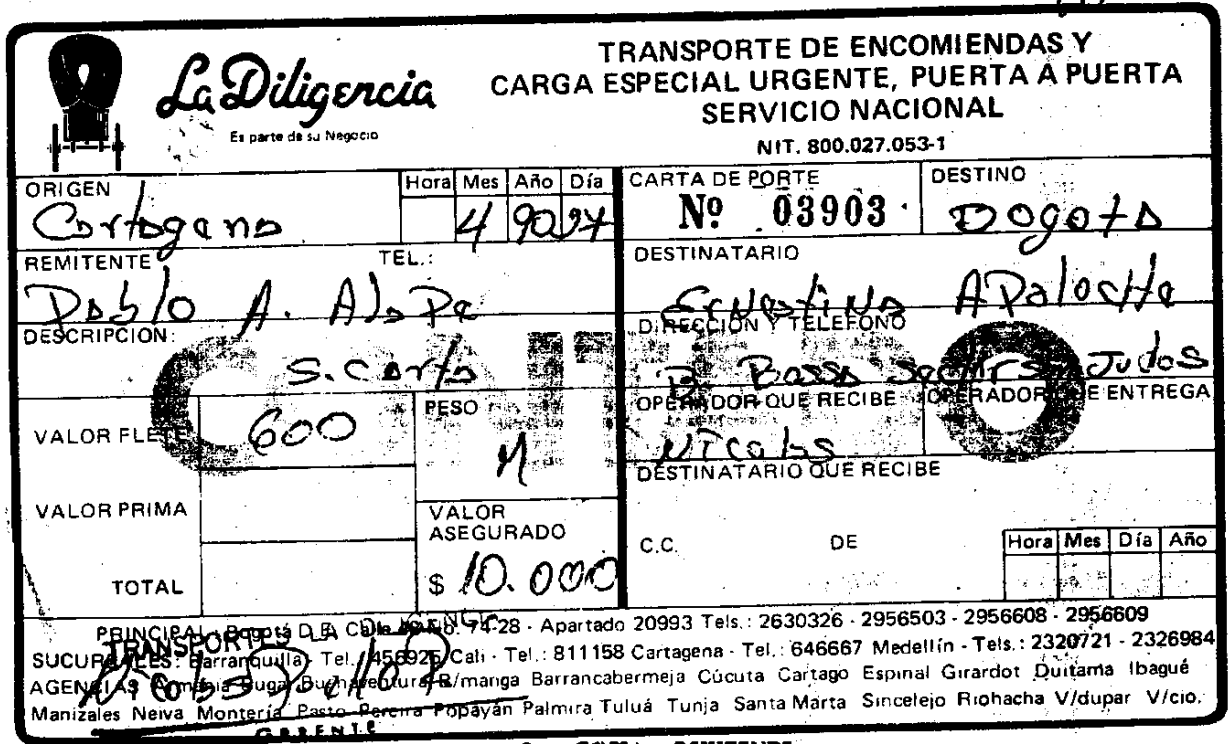 La Diligencia
Es parte de su Negocio
TRANSPORTE DE ENCOMIENDAS Y
CARGA ESPECIAL URGENTE, PUERTA A PUERTA
SERVICIO NACIONAL
NIT. 800.027.053-1
ORIGEN Hora Mes Año Día
Cartagena 4 90 27
CARTA DE PORTE
Nº 03903
DESTINO
Bogota
REMITENTE TEL.:
Pablo A.
DESTINATARIO
Ernestina
DESCRIPCION:
S. Carta
DIRECCION Y TELEFONO
B. Bosa
VALOR FLETE 600
PESO
M
OPERADOR QUE RECIBE
Nicolas
OPERADOR QUE ENTREGA
DESTINATARIO QUE RECIBE
VALOR PRIMA
VALOR
ASEGURADO
$ 10.000
C.C. DE
Hora Mes Día Año
TOTAL
PRINCIPAL: Bogotá D.E. Calle No. 74-28 - Apartado 20993 Tels.: 2630326 - 2956503 - 2956608 - 2956609
SUCURSALES: Barranquilla - Tel.: 456925 Cali - Tel.: 811158 Cartagena - Tel.: 646667 Medellín - Tels.: 2320721 - 2326984
AGENCIAS Armenia Buga Buenaventura B/manga Barrancabermeja Cúcuta Cartago Espinal Girardot Duitama Ibagué
Manizales Neiva Montería Pasto Pereira Popayán Palmira Tuluá Tunja Santa Marta Sincelejo Riohacha V/dupar V/cio.
TRANSPORTES LA DILIGENCIA
GERENTE